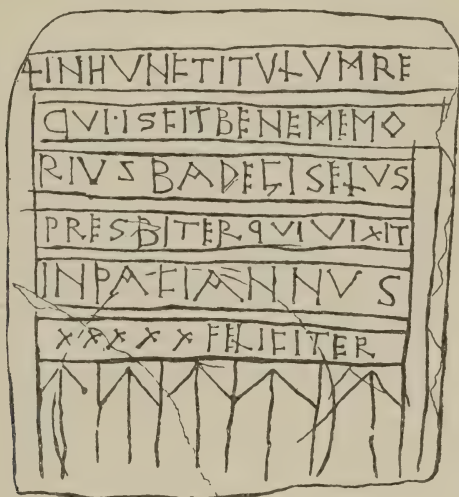 +INHVNCTITVLVMRE
QVI·ISCITBENEMEMO
RIVS BADEGISELVS
PRESBITER QVI VIXIT
INPACIANNVS
XXXXX FELICITER